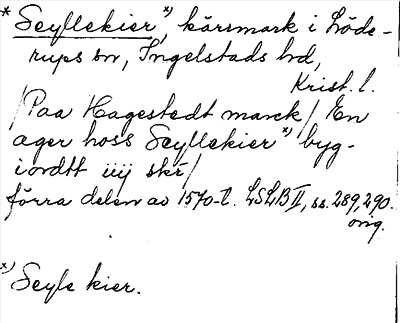 * Seyllekier x), kärsmark i Löde-
rups sn, Ingelstads hd,
Krist. l.
/Paa Hagestedt marck/ En
ager hoss Seyllekier x) byg-
iordtt iiij skr/
förra delen av 1570-t. LSLB II, ss. 289, 290.
orig.
x) Seyle kier.